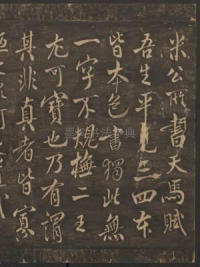 米公所書天馬賦
吾生平見三四本
皆本色書獨此無
一字不規撫二王
尤可寶也乃有謂
其非真者皆寡